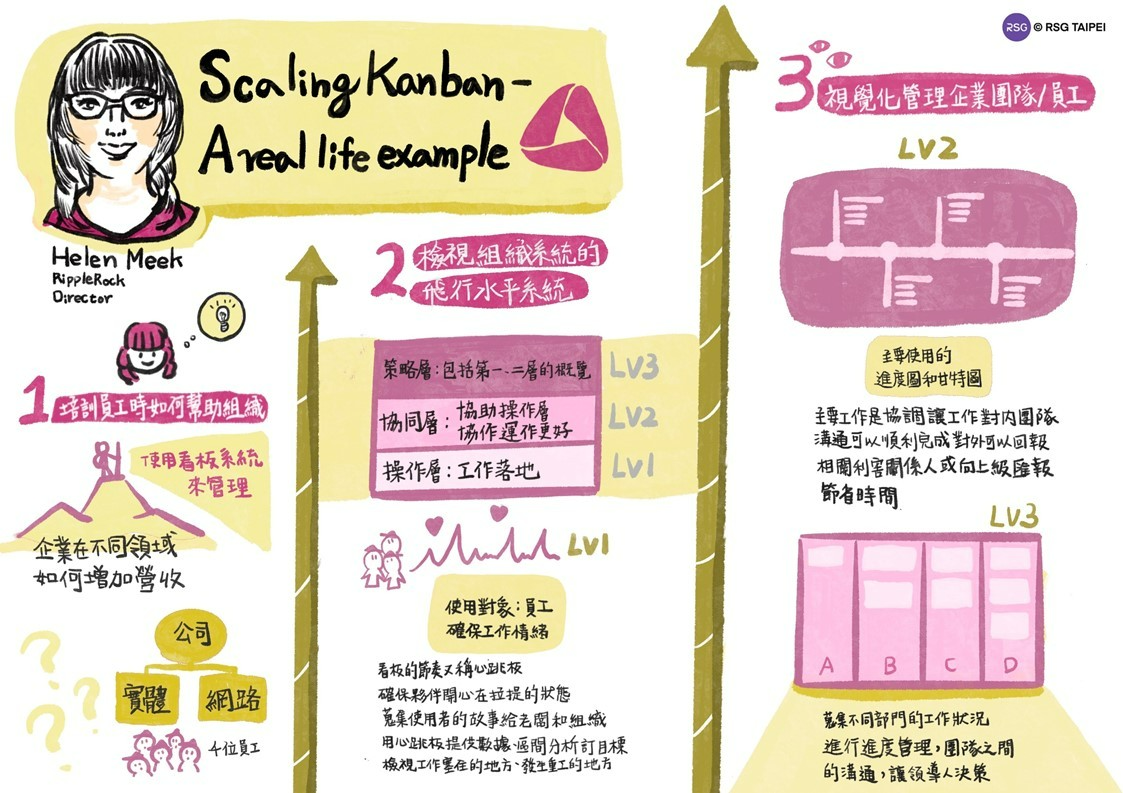 RSG © RSG TAIPEI
Scaling Kanban –
A real life example
Helen Meek
RippleRock
Director
1 培訓員工時如何幫助組織
使用看板系統
來管理
企業在不同領域
如何增加營收
公司
實體
網路
4位員工
2 檢視組織系統的
飛行水平系統
策略層：包括第一、二層的概覽 LV3
協同層：協助操作層
協作運作更好
LV2
操作層：工作落地 LV1
LV1
使用對象：員工
確保工作情緒
看板的節奏又稱心跳板
確保夥伴開心在拉提的狀態
蒐集使用者的故事給老闆和組織
用心跳板提供數據、區間分析訂目標
檢視工作塞住的地方、發生重工的地方
3 視覺化管理企業團隊/員工
LV2
主要使用的
進度圖和甘特圖
主要工作是協調讓工作對內團隊
溝通可以順利完成對外可以回報
相關利害關係人或向上級匯報
節省時間
LV3
A B C D
蒐集不同部門的工作狀況
進行進度管理，團隊之間
的溝通，讓領導人決策